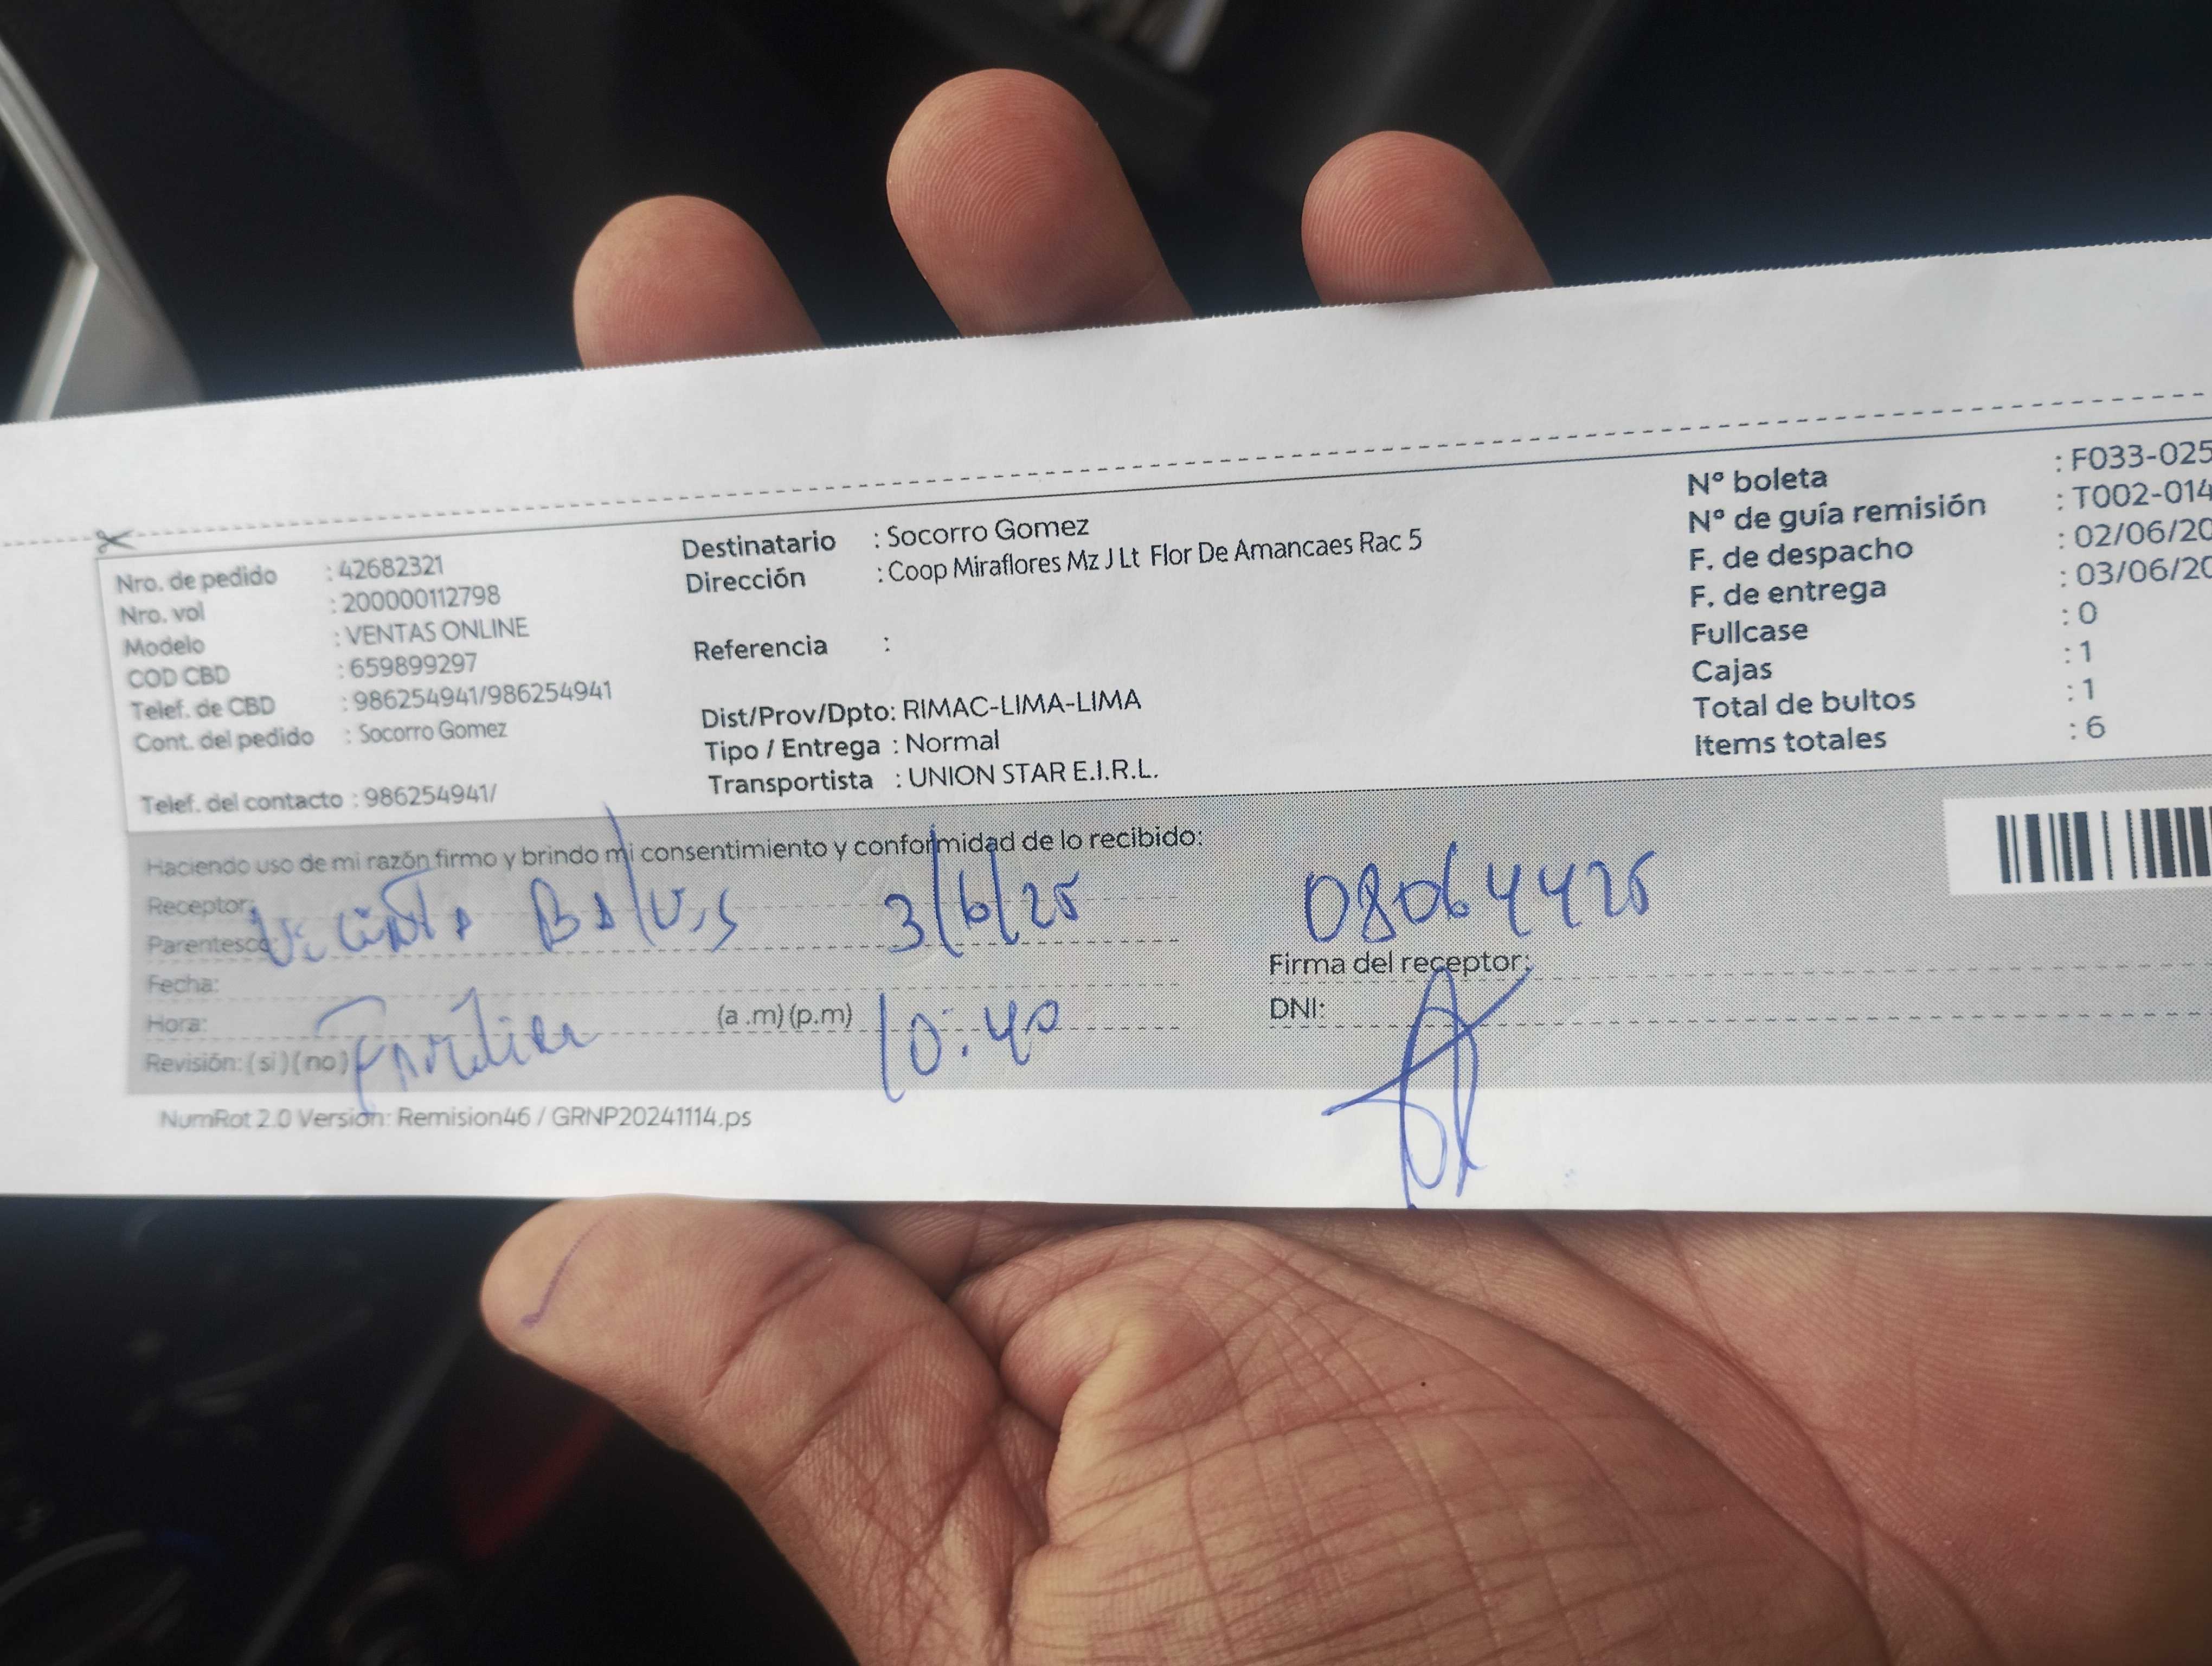 Nro. de pedido : 42682321
Nro. vol : 200000112798
Modelo : VENTAS ONLINE
COD CBD : 659899297
Telef. de CBD : 986254941/986254941
Cont. del pedido : Socorro Gomez
Telef. del contacto : 986254941/
Destinatario : Socorro Gomez
Dirección : Coop Miraflores Mz J Lt Flor De Amancaes Rac 5
Referencia :
Dist/Prov/Dpto: RIMAC-LIMA-LIMA
Tipo / Entrega : Normal
Transportista : UNION STAR E.I.R.L.
N° boleta : F033-025
N° de guía remisión : T002-014
F. de despacho : 02/06/20
F. de entrega : 03/06/20
Fullcase : 0
Cajas : 1
Total de bultos : 1
Items totales : 6
Haciendo uso de mi razón firmo y brindo mi consentimiento y conformidad de lo recibido:
Receptor:
Parentesco: 3/6/25
Fecha:
Hora: (a .m) (p.m) 10:40
Revisión: ( si ) ( no ) Familiar
08064425
Firma del receptor:
DNI:
NumRot 2.0 Version: Remision46 / GRNP20241114.ps